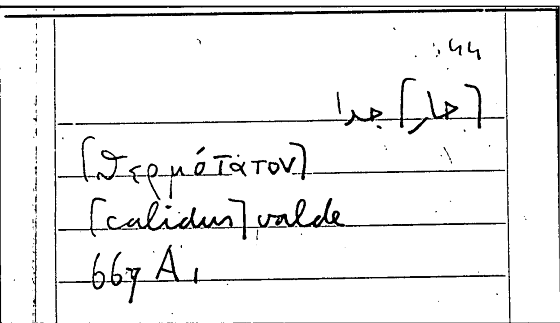 44
[حار] جدا
[θερμότατον]
[calidus] valde
667 A,